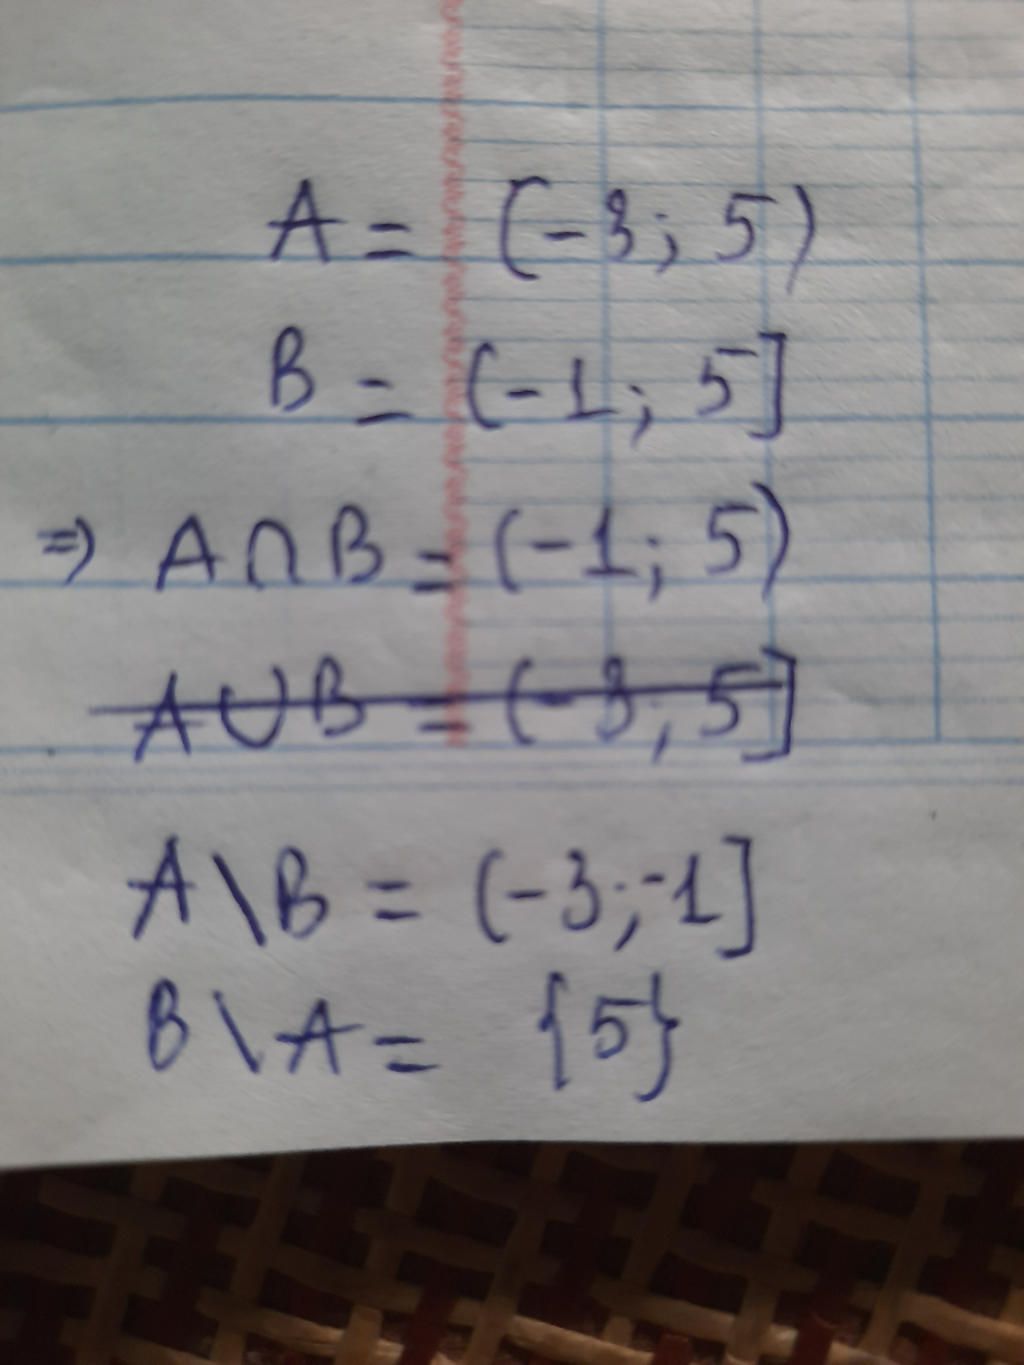 A = (-3; 5)
B = (-1; 5]
=> A∩B = (-1; 5)
A∪B = (-3; 5]
A\B = (-3; -1]
B\A = {5}